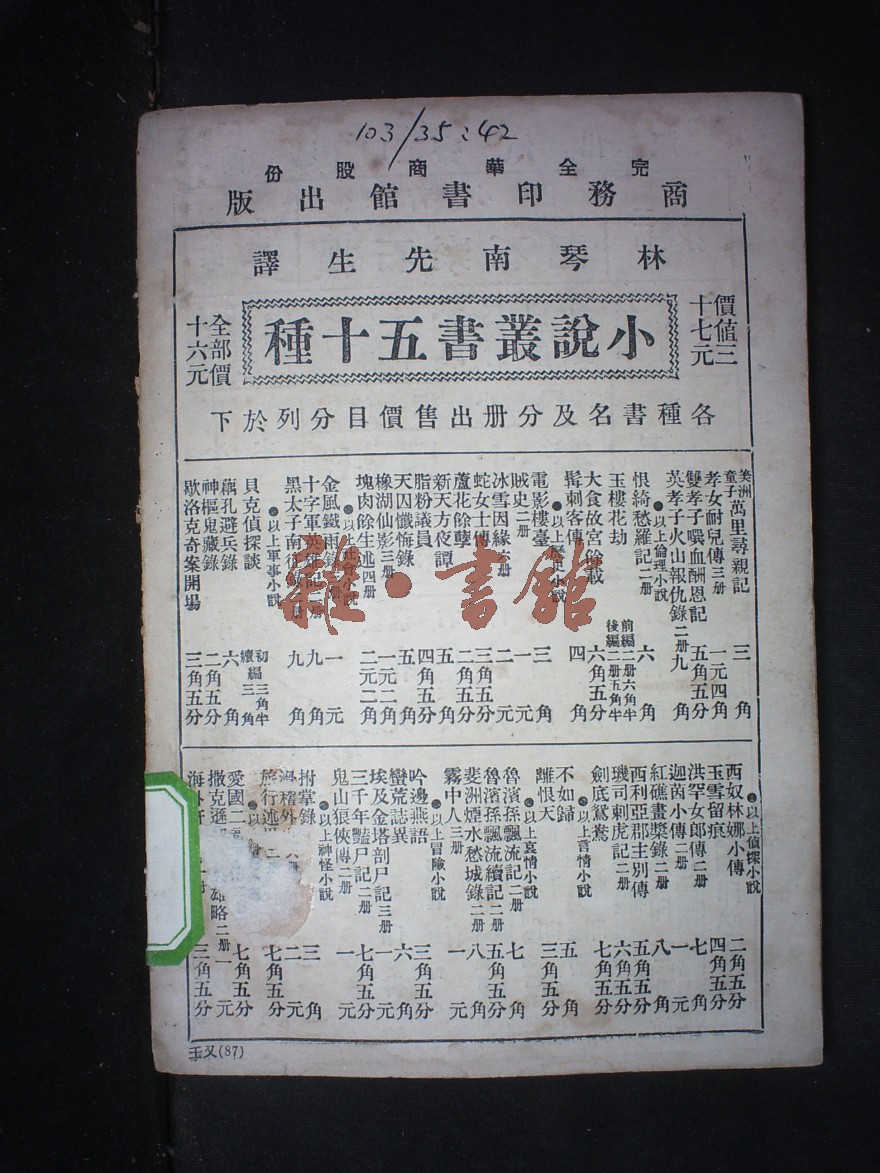 103/35:42
完全華商股份
商務印書館出版
林琴南先生譯
價值三十七元
小說叢書五十種
全部價十六元
各種書名及分册出售價目分列於下
美洲童子萬里尋親記 三角
孝女耐兒傳三册 一元四角
雙孝子噀血酬恩記 五角五分
英孝子火山報仇錄二册 九角
●以上倫理小說
恨綺愁羅記二册 六角
玉樓花劫 前編二册六角半 後編二册五角半
大食故宮餘載 六角五分
●以上歷史小說
髯刺客傳 四角
電影樓臺 三角
賊史二册 一元
冰雪因緣六册 二元
蛇女士傳 三角五分
蘆花餘孽 二角五分
新天方夜譚 五角
脂粉議員 四角五分
天囚懺悔錄 五角
橡湖仙影三册 一元二角
塊肉餘生述四册 二元二角
●以上社會小說
金風鐵雨錄 册 一元
十字軍英雄記 册 九角
黑太子南征錄 册 九角
●以上軍事小說
貝克偵探談 初編三角半 續編三角
藕孔避兵錄 六角
神樞鬼藏錄 二角五分
歇洛克奇案開場 三角五分
●以上偵探小說
西奴林娜小傳 二角五分
玉雪留痕 四角五分
洪罕女郎傳二册 七角
迦茵小傳二册 一元
紅礁畫槳錄二册 八角
西利亞郡主別傳 五角五分
璣司刺虎記二册 六角五分
劍底鴛鴦 七角五分
●以上言情小說
不如歸 五角
離恨天 三角五分
●以上哀情小說
魯濱孫飄流記二册 七角
魯濱孫飄流續記二册 五角五分
斐洲煙水愁城錄二册 八角
霧中人三册 一元
●以上冒險小說
吟邊燕語 三角五分
蠻荒誌異 六角
埃及金塔剖尸記三册 一元
三千年艷尸記二册 七角五分
鬼山狼俠傳二册 一元
●以上神怪小說
拊掌錄 三角
滑稽外 六 二元
旅行述 二 七角五分
●以
愛國二 七角五分
撒克遜 雄略二册 一元
海外軒 册 三角五分
雜·書館
玉又(87)